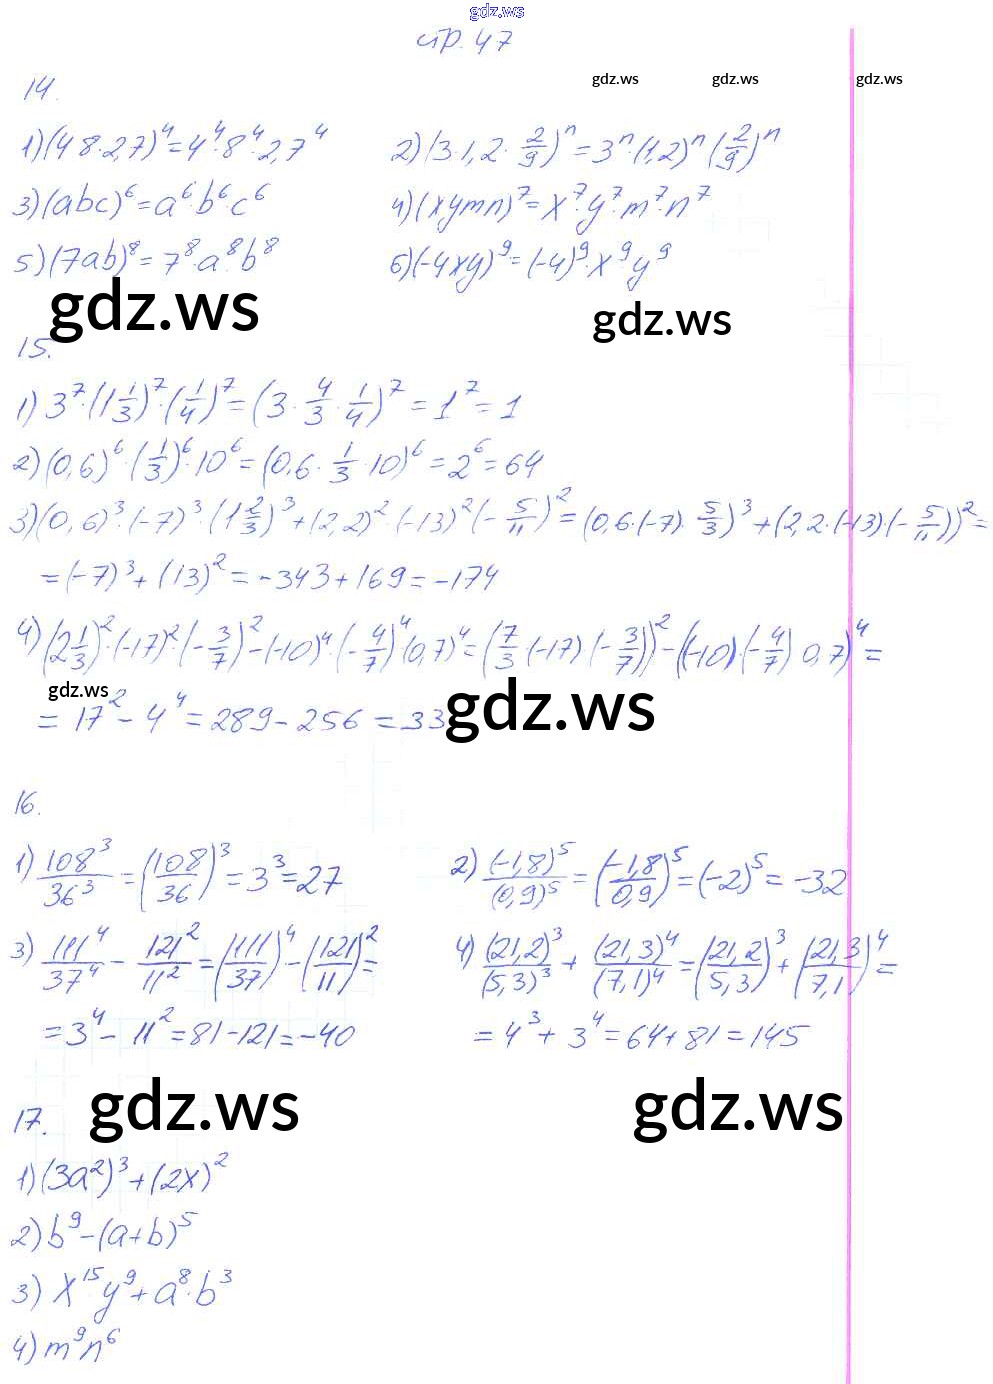 gdz.ws
стр. 47
gdz.ws gdz.ws gdz.ws
14.
1) (4·8·2,7)⁴ = 4⁴·8⁴·2,7⁴ 2) (3·1,2·2/9)ⁿ = 3ⁿ·(1,2)ⁿ·(2/9)ⁿ
3) (abc)⁶ = a⁶·b⁶·c⁶ 4) (xymn)⁷ = x⁷·y⁷·m⁷·n⁷
5) (7ab)⁸ = 7⁸·a⁸·b⁸ 6) (-4xy)⁹ = (-4)⁹·x⁹·y⁹
gdz.ws gdz.ws
15.
1) 3⁷·(1 1/3)⁷·(1/4)⁷ = (3·4/3·1/4)⁷ = 1⁷ = 1
2) (0,6)⁶·(1/3)⁶·10⁶ = (0,6·1/3·10)⁶ = 2⁶ = 64
3) (0,6)³·(-7)³·(1 2/3)³ + (2,2)²·(-13)²·(-5/11)² = (0,6·(-7)·5/3)³ + (2,2·(-13)·(-5/11))² =
= (-7)³ + (13)² = -343 + 169 = -174
4) (2 1/3)²·(-17)²·(-3/7)² - (-10)⁴·(-4/7)⁴·(0,7)⁴ = (7/3·(-17)·(-3/7))² - ((-10)·(-4/7)·0,7)⁴ =
gdz.ws gdz.ws
= 17² - 4⁴ = 289 - 256 = 33
16.
1) 108³/36³ = (108/36)³ = 3³ = 27 2) (-1,8)⁵/(0,9)⁵ = (-1,8/0,9)⁵ = (-2)⁵ = -32
3) 111⁴/37⁴ - 121²/11² = (111/37)⁴ - (121/11)² = 4) (21,2)³/(5,3)³ + (21,3)⁴/(7,1)⁴ = (21,2/5,3)³ + (21,3/7,1)⁴ =
= 3⁴ - 11² = 81 - 121 = -40 = 4³ + 3⁴ = 64 + 81 = 145
gdz.ws gdz.ws
17.
1) (3a²)³ + (2x)²
2) b⁹ - (a+b)⁵
3) x¹⁵·y⁹ + a⁸·b³
4) m⁹n⁶